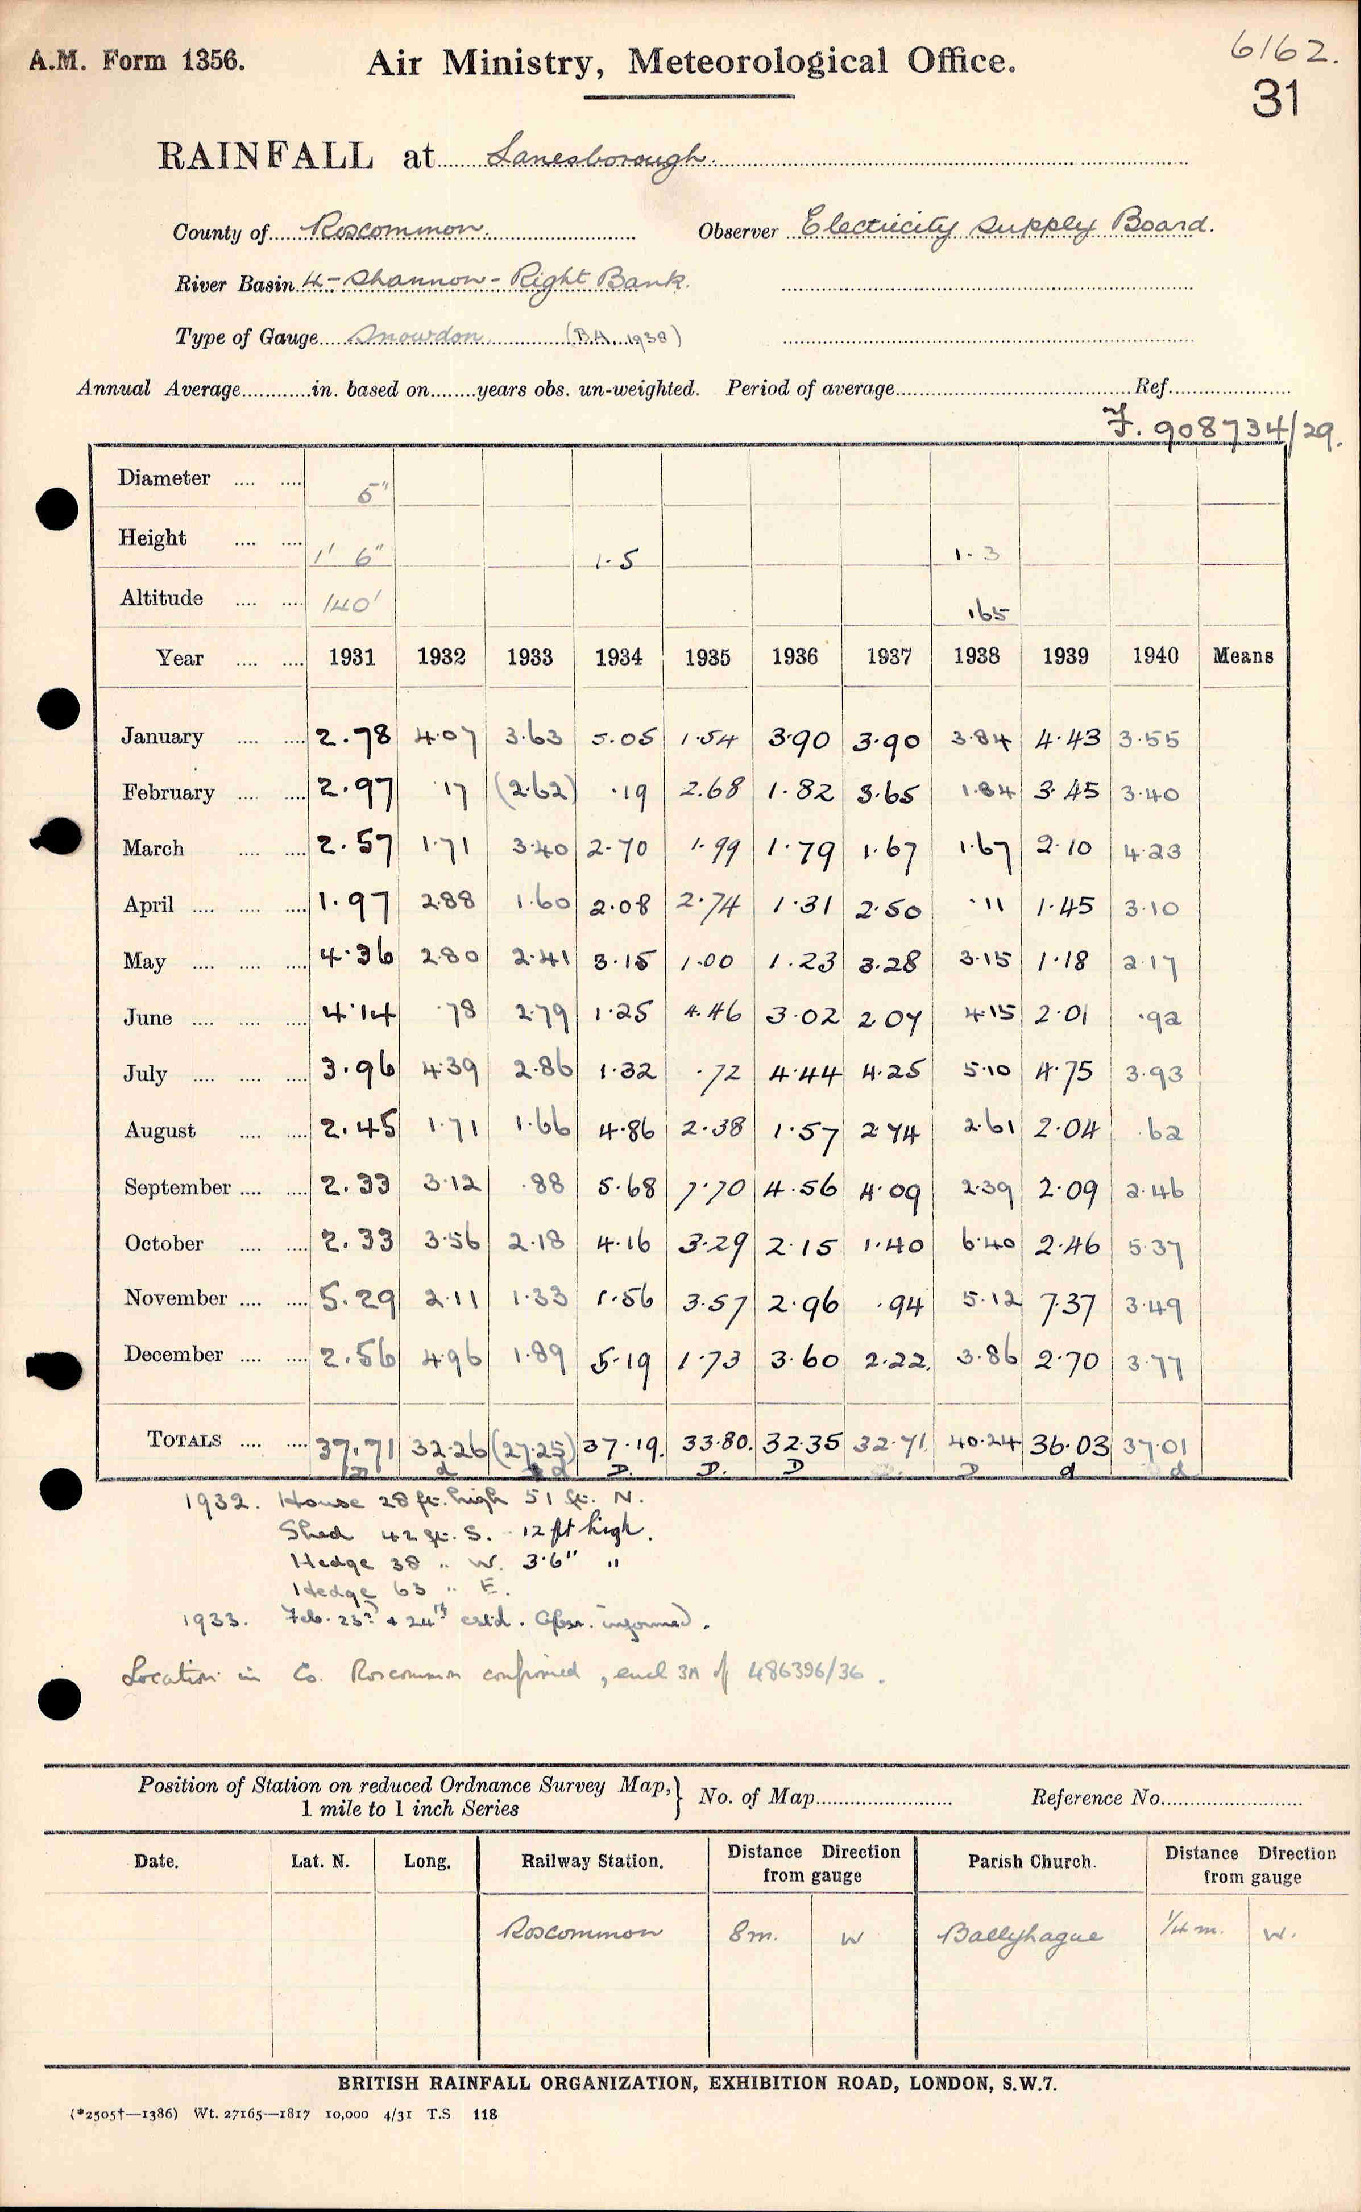 A.M. Form 1356.
Air Ministry, Meteorological Office.
6162.
31
RAINFALL at Lanesborough.
County of Roscommon. Observer Electricity Supply Board.
River Basin 4 - Shannon - Right Bank.
Type of Gauge Snowdon (BA. 1938)
Annual Average in. based on years obs. un-weighted. Period of average Ref.
F. 908734/29.
Diameter 5"
Height 1' 6" 1.5 1.3
Altitude 140' 165
Year 1931 1932 1933 1934 1935 1936 1937 1938 1939 1940 Means
January 2.78 4.07 3.63 5.05 1.54 3.90 3.90 3.84 4.43 3.55
February 2.97 .17 (2.62) .19 2.68 1.82 3.65 1.84 3.45 3.40
March 2.57 1.71 3.40 2.70 1.99 1.79 1.67 1.67 2.10 4.23
April 1.97 2.88 1.60 2.08 2.74 1.31 2.50 .11 1.45 3.10
May 4.36 2.80 2.41 3.15 1.00 1.23 3.28 3.15 1.18 2.17
June 4.14 .78 2.79 1.25 4.46 3.02 2.07 4.15 2.01 .92
July 3.96 4.39 2.86 1.32 .72 4.44 4.25 5.10 4.75 3.93
August 2.45 1.71 1.66 4.86 2.38 1.57 2.74 2.61 2.04 .62
September 2.33 3.12 .88 5.68 7.70 4.56 4.09 2.39 2.09 2.46
October 2.33 3.56 2.18 4.16 3.29 2.15 1.40 6.40 2.46 5.37
November 5.29 2.11 1.33 1.56 3.57 2.96 .94 5.12 7.37 3.49
December 2.56 4.96 1.89 5.19 1.73 3.60 2.22. 3.86 2.70 3.77
TOTALS 37.71 32.26 (27.25) 37.19. 33.80. 32.35 32.71 40.24 36.03 37.01
d d D. D. D D d d
1932. House 28 ft. high 51 ft. N.
Shed 42 ft. S. 12 ft high.
Hedge 38 " W. 3'6" "
Hedge 63 " E.
1933. Feb. 23rd & 24th estd. Obsr. informed.
Location in Co. Roscommon confirmed, encl 3A of 486396/36.
Position of Station on reduced Ordnance Survey Map, 1 mile to 1 inch Series } No. of Map Reference No.
Date. Lat. N. Long. Railway Station. Distance Direction from gauge Parish Church. Distance Direction from gauge
Roscommon 8m. W Ballyhague ¼ m. W.
BRITISH RAINFALL ORGANIZATION, EXHIBITION ROAD, LONDON, S.W.7.
(*2505†—1386) Wt. 27165—1817 10,000 4/31 T.S 118